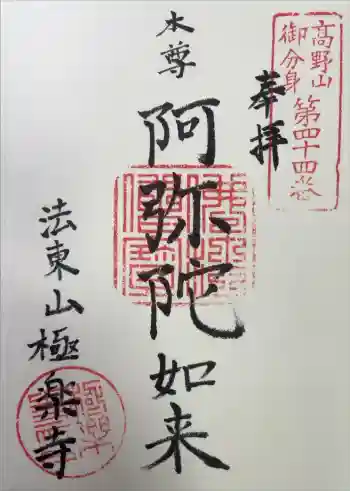 高野山
御分身
第四十四番
奉拝
本尊
阿弥陀如来
法東山極楽寺